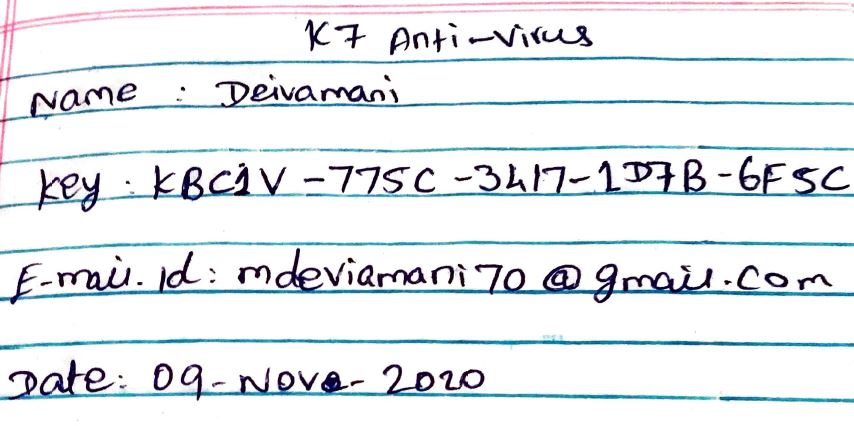 K7 Anti-virus
Name : Deivamani
Key : KBC1V-775C-3417-1D7B-6F5C
E-mail.Id: mdeviamani70@gmail.com
Date: 09-Nove-2020